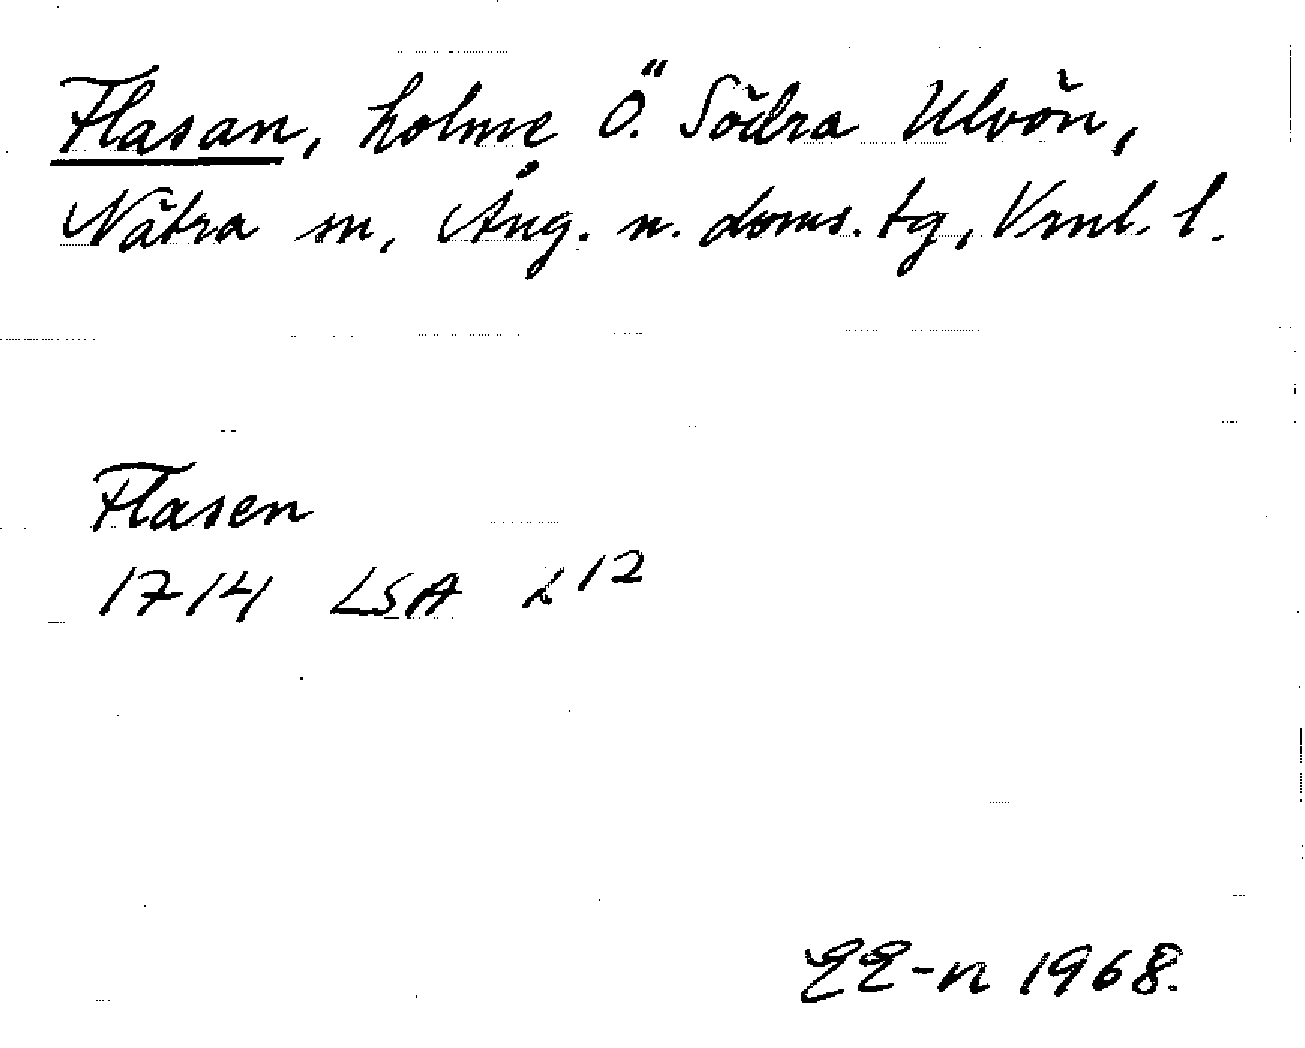 Flasan, holme Ö. Södra Ulvön,
Nätra sn, Ång. n. doms. tg, Vrnl. l.
Flasen
1714 LSA L12
EE-n 1968.